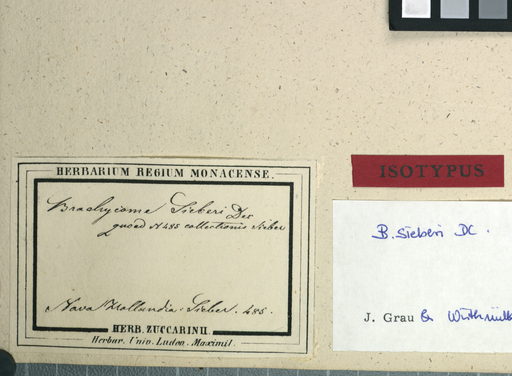 HERBARIUM REGIUM MONACENSE.
Brachycome Sieberi Dec
quoad N 485 collectionis Sieber
Nova Hollandia. Sieber. 485.
HERB. ZUCCARINII.
Herbar. Univ. Ludov. Maximil.
ISOTYPUS
B. Sieberi DC.
J. Grau &